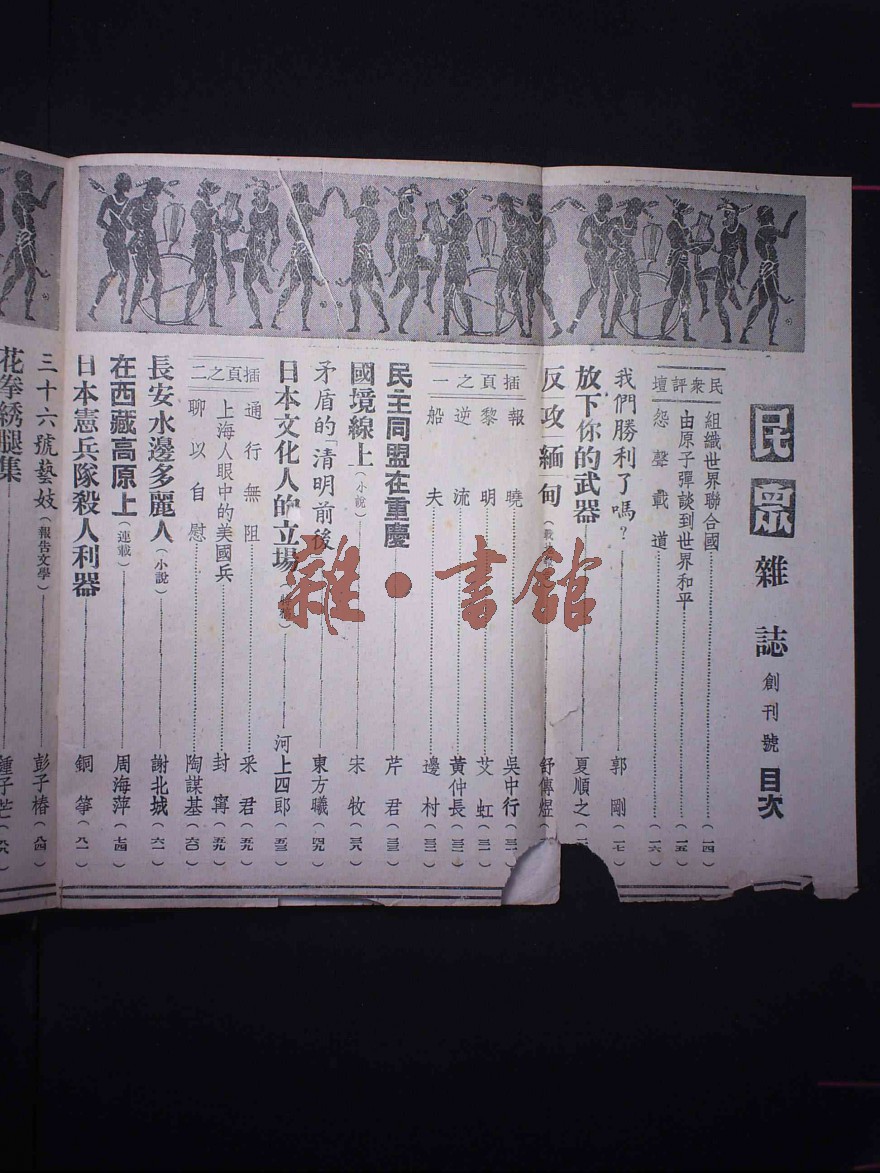 民眾雜誌 創刊號 目次
民衆評壇
組織世界聯合國(一四)
由原子彈談到世界和平(一五)
怨聲載道(一六)
我們勝利了嗎?郭剛(一七)
放下你的武器 夏順之
反攻緬甸 舒傳煜
插頁之一
報曉 吳中行(三一)
黎明 艾虹(三一)
逆流 黃仲長(三二)
船夫 邊村(三二)
民主同盟在重慶 芹君(三三)
國境線上(小說)宋牧(三八)
矛盾的「清明前後」東方曦(四九)
日本文化人的立場 河上四郎(五三)
插頁之二
通行無阻 采君(五九)
上海人眼中的美國兵 封寗(五九)
聊以自慰 陶謀基(六〇)
長安水邊多麗人(小說)謝北城(六一)
在西藏高原上(連載)周海萍(七四)
日本憲兵隊殺人利器 銅箏(八一)
三十六號藝妓(報告文學)彭子椿(八四)
花拳綉腿集 鍾子芒(八八)
雜·書館